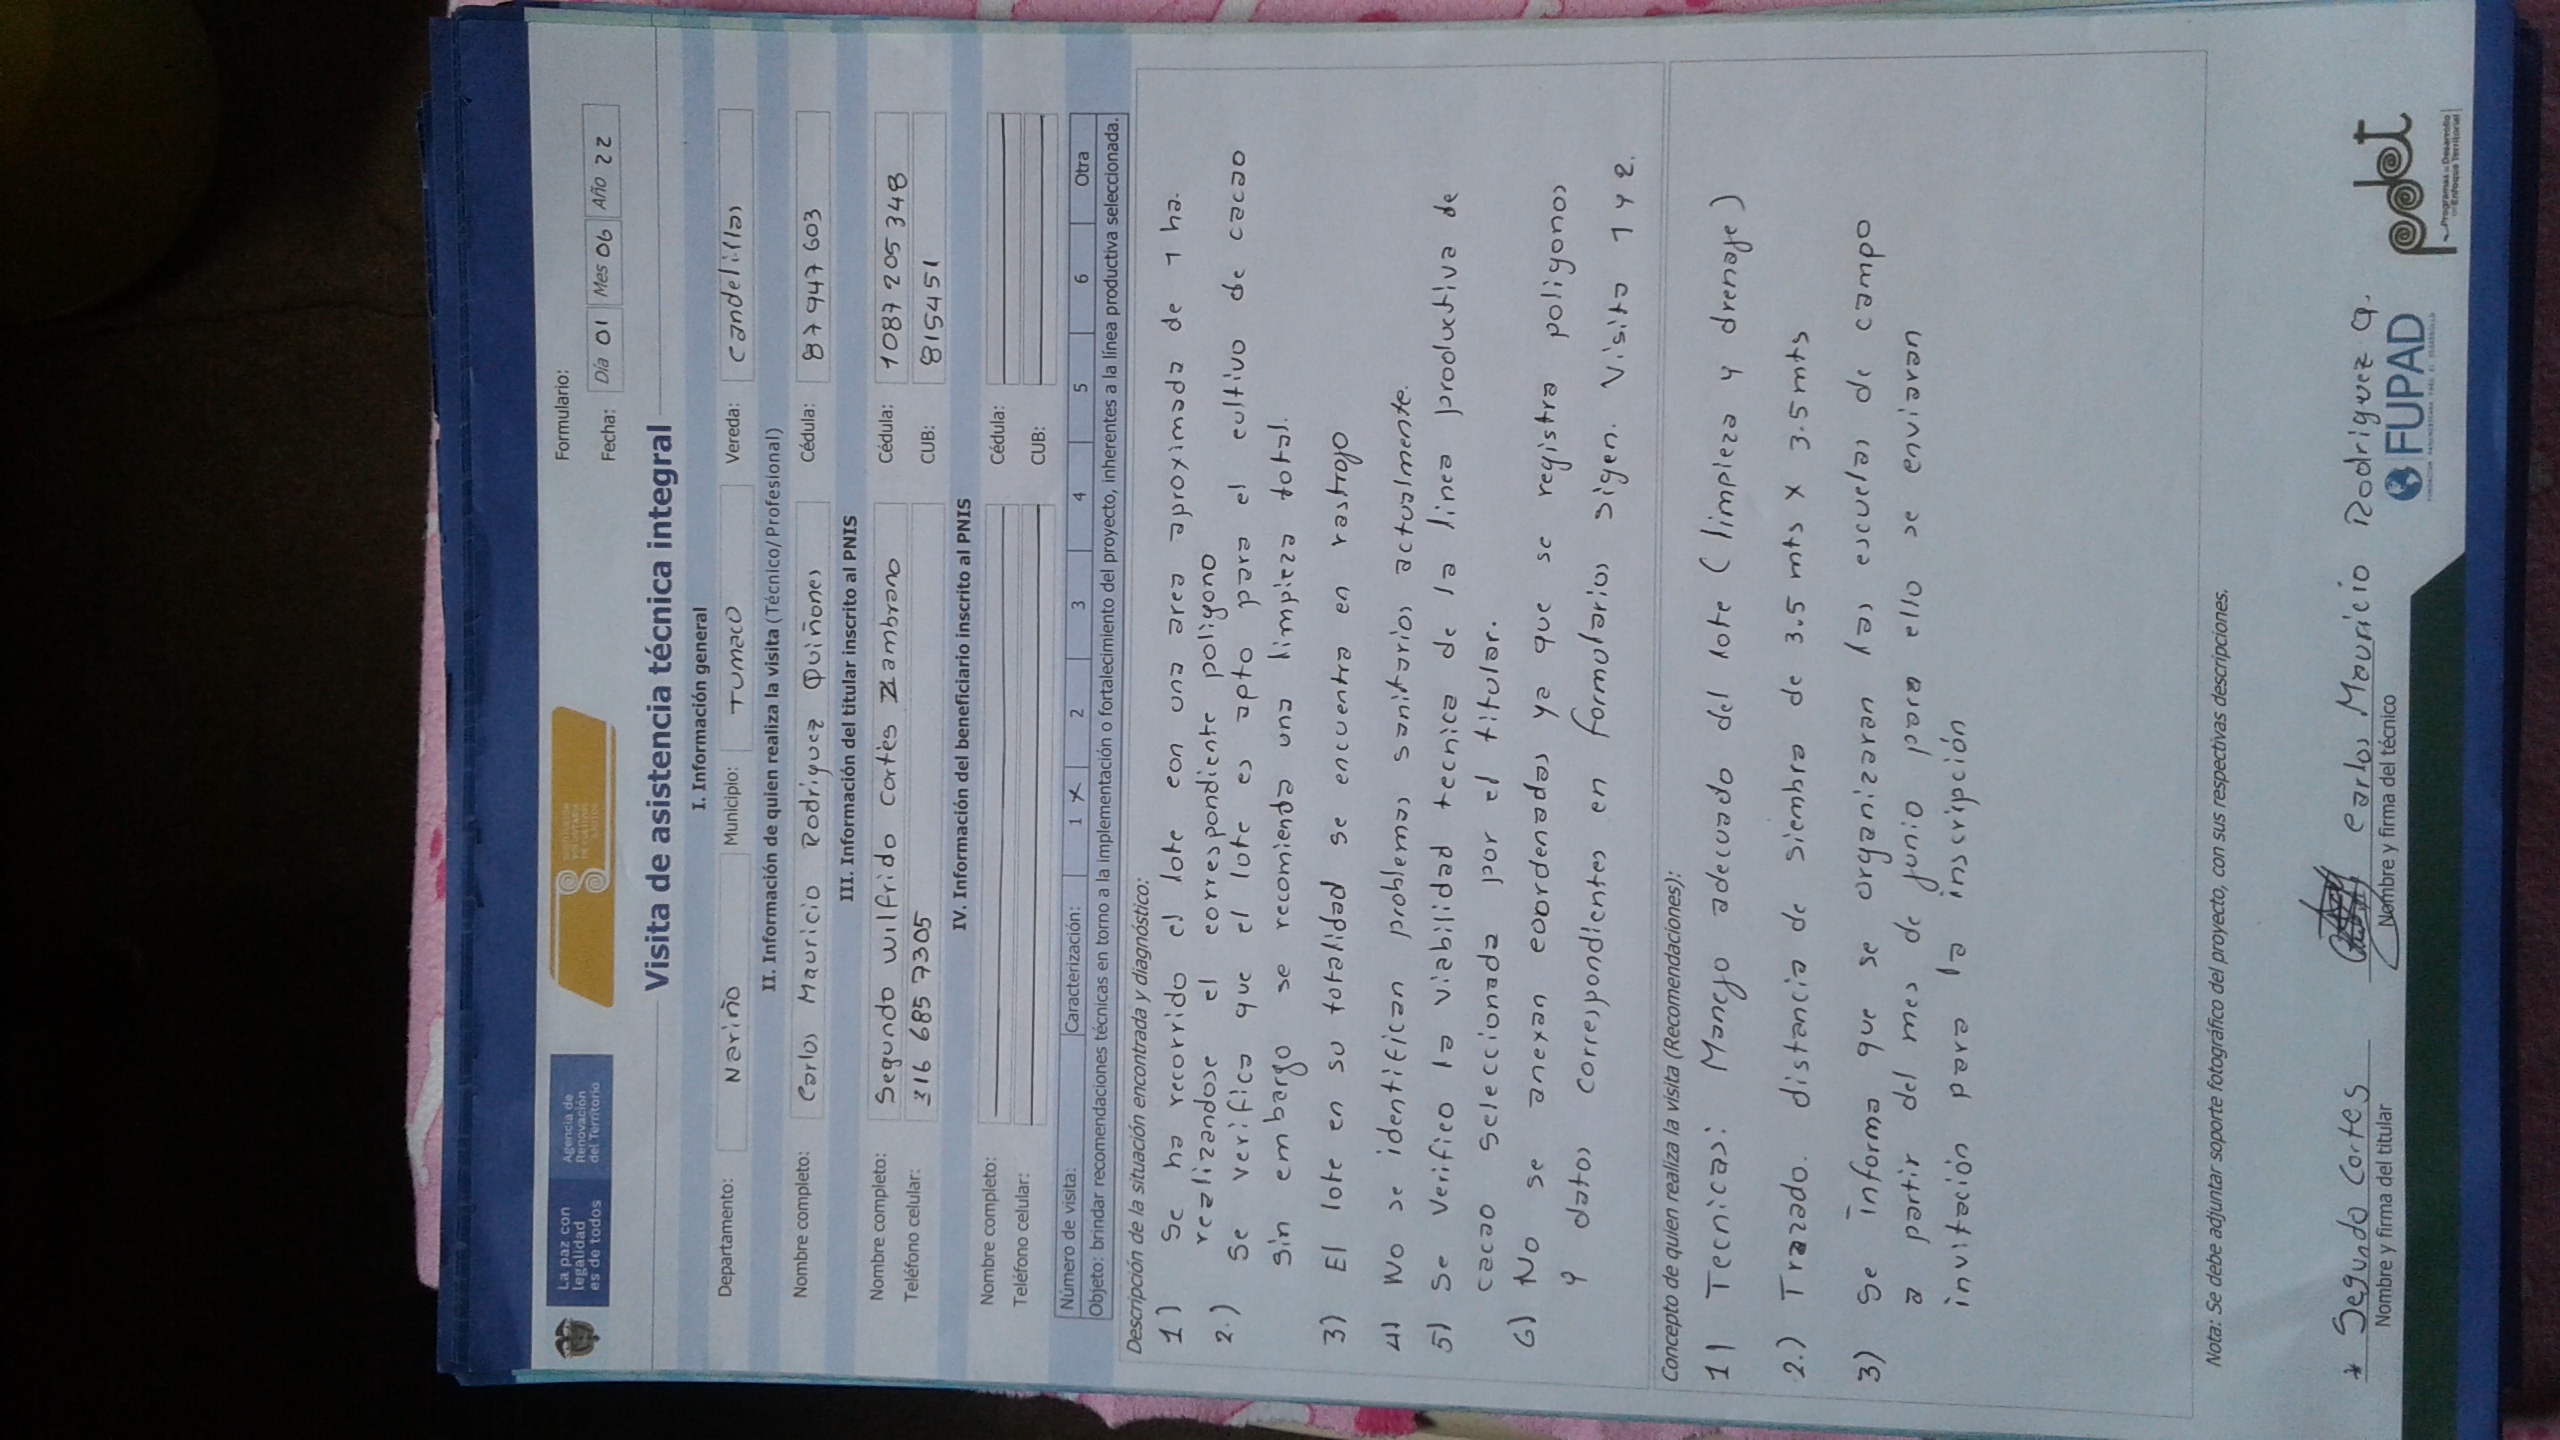 La paz con
legalidad
es de todos
Agencia de
Renovación
del Territorio
SUSTITUCIÓN
VOLUNTARIA
DE CULTIVOS
ILÍCITOS
Formulario:
Fecha: Día 01 Mes 06 Año 22
Visita de asistencia técnica integral
I. Información general
Departamento: Nariño Municipio: TUMACO Vereda: Candelillas
II. Información de quien realiza la visita (Técnico/Profesional)
Nombre completo: Carlos Mauricio Rodriguez Quiñones Cédula: 87 947 603
III. Información del titular inscrito al PNIS
Nombre completo: Segundo Wilfrido Cortès Zambrano Cédula: 1087 205 348
Teléfono celular: 316 685 7305 CUB: 815451
IV. Información del beneficiario inscrito al PNIS
Nombre completo: Cédula:
Teléfono celular: CUB:
Número de visita: Caracterización: 1 X 2 3 4 5 6 Otra
Objeto: brindar recomendaciones técnicas en torno a la implementación o fortalecimiento del proyecto, inherentes a la línea productiva seleccionada.
Descripción de la situación encontrada y diagnóstico:
1) Se ha recorrido el lote con una area aproximada de 1 ha.
realizandose el correspondiente poligono
2.) Se verifica que el lote es apto para el cultivo de cacao
sin embargo se recomienda una limpieza total.
3) El lote en su totalidad se encuentra en rastrojo
4) No se identifican problemas sanitarios actualmente.
5) Se verifico la viabilidad tecnica de la linea productiva de
cacao seleccionada por el titular.
6) No se anexan coordenadas ya que se registra poligonos
y datos correspondientes en formularios sigen. Visita 1 y 2.
Concepto de quien realiza la visita (Recomendaciones):
1) Tecnicas: Manejo adecuado del lote (limpieza y drenaje)
2.) Trazado. distancia de siembra de 3.5 mts x 3.5 mts
3) Se informa que se organizaran las escuelas de campo
a partir del mes de junio para ello se enviaran
invitación para la inscripción
Nota: Se debe adjuntar soporte fotográfico del proyecto, con sus respectivas descripciones.
* Segundo Cortes
Nombre y firma del titular
Carlos Mauricio Rodriguez Q.
Nombre y firma del técnico
FUPAD
FUNDACIÓN PANAMERICANA PARA EL DESARROLLO
pdet
Programas de Desarrollo
con Enfoque Territorial